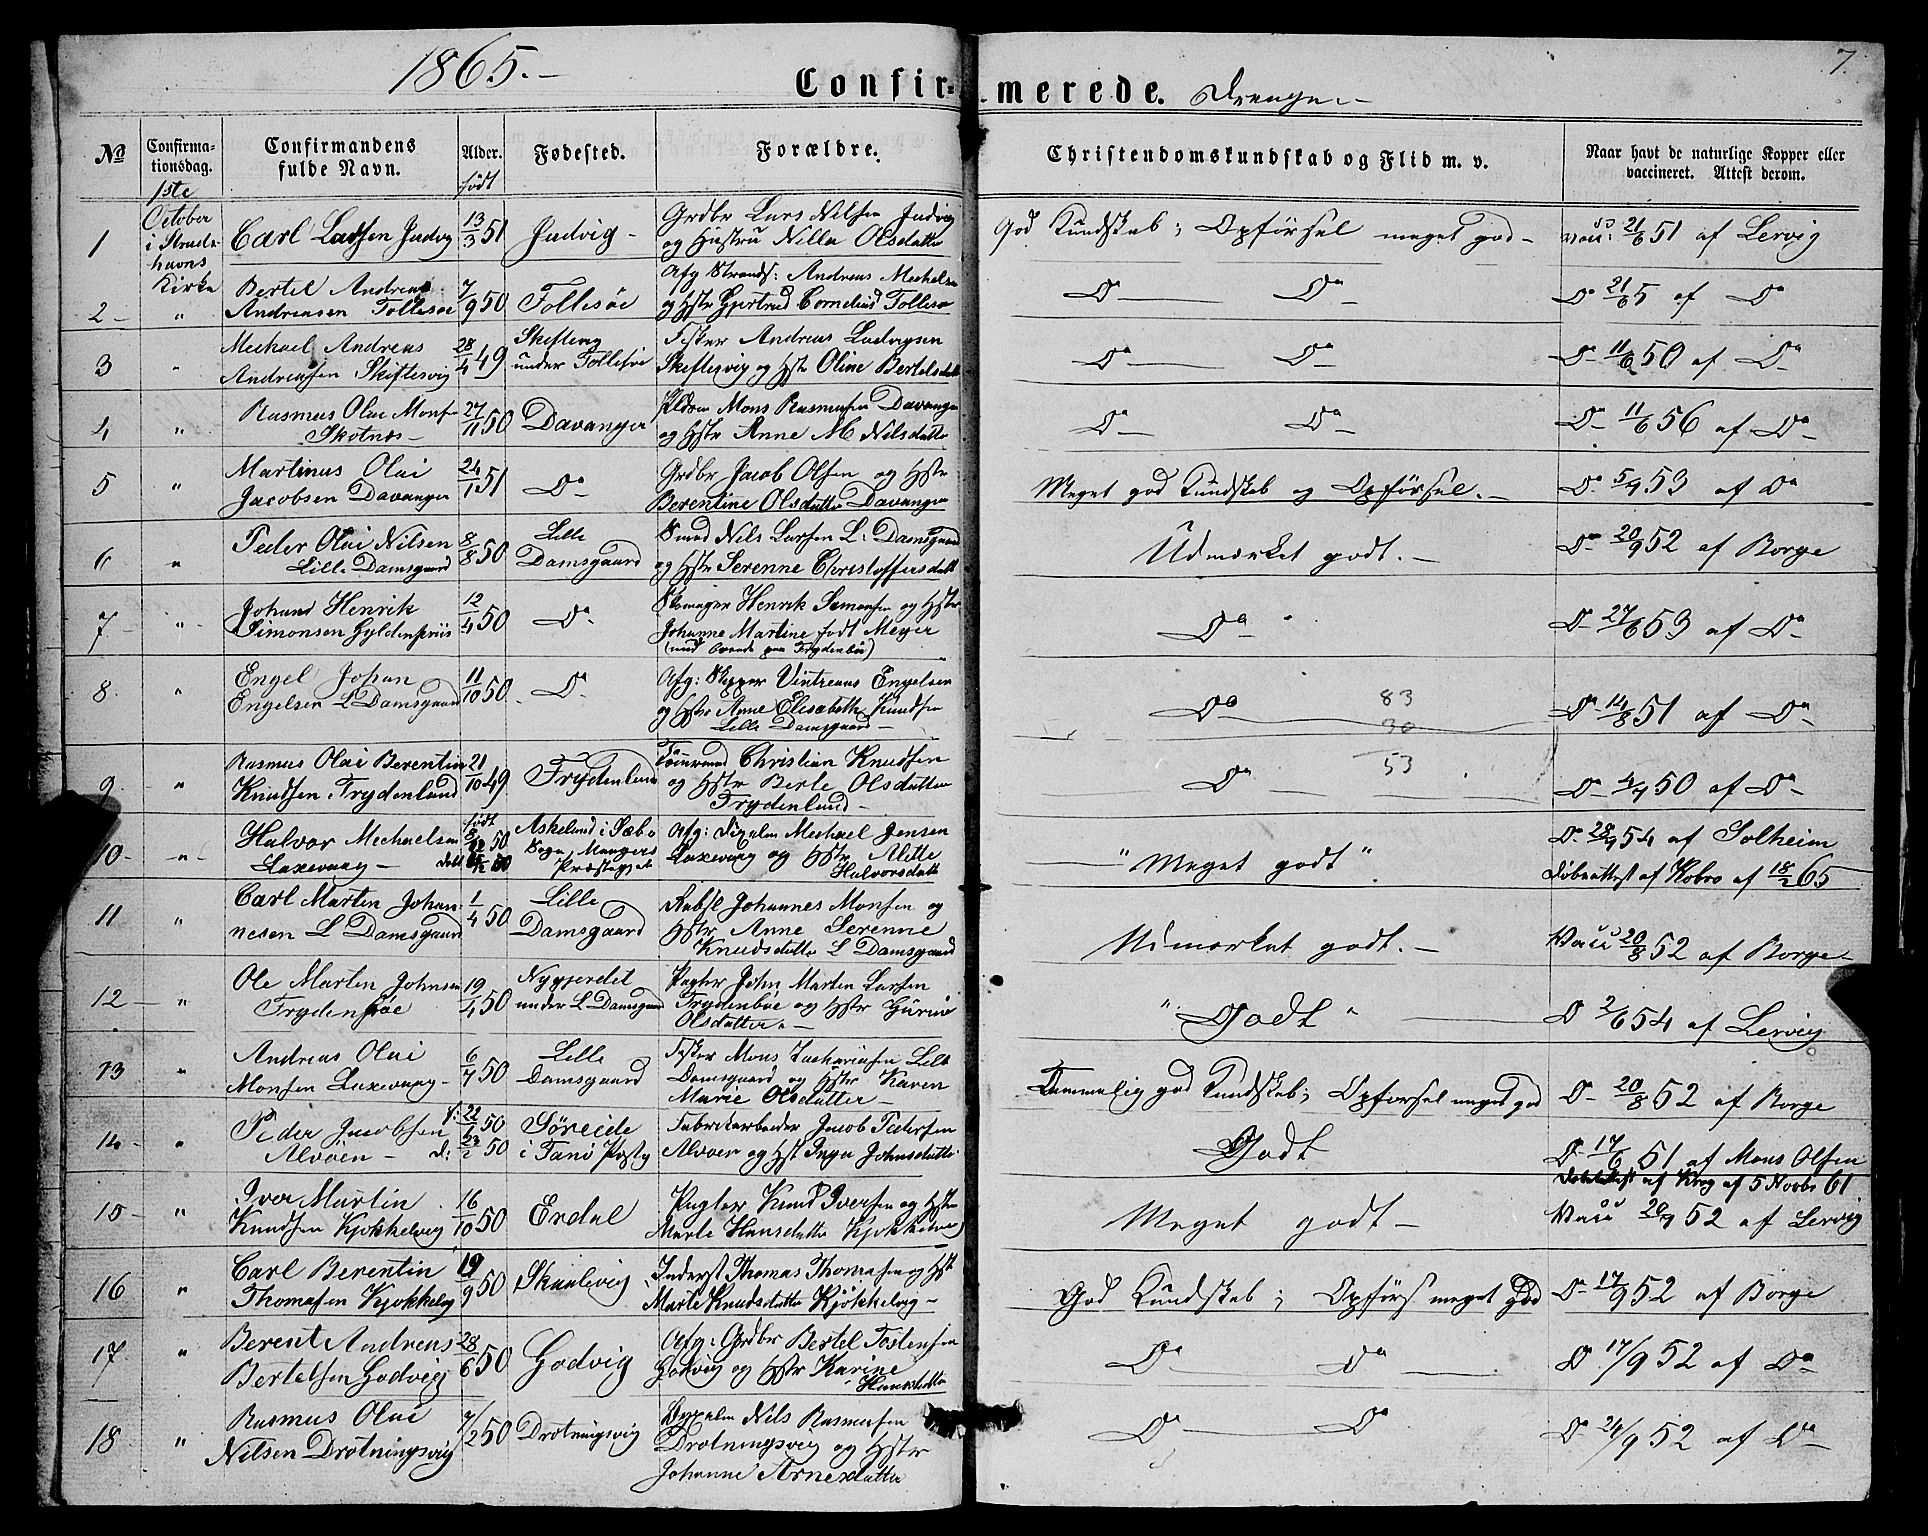 1865.-
7.
Confir- merede. Drenge.-
No
Confirma-
tionsdag.
Confirmandens
fulde Navn.
Alder.
født
Fødested.
Forældre.
Christendomskundskab og Flid m. v.
Naar havt de naturlige Kopper eller
vaccineret. Attest derom.
1ste
October
i Strude-
havns
Kirke
1 Carl Larsen Jadvig 13/3 51 Jadvig - Grdbr Lars Nilsen Jadvig
og Hustru Nille Olsdatter
God Kundskab; Opførsel meget god - vacc: 21/6 51 af Lervig
2 - " Bertel Andreas
Andreasen Tollesøe 7/9 50 Follesøe Afg Strands: Andreas Mechelsen
og Hstr Gjertrud Cornelius Follesø
Do Do Do 21/6 5 af Do
3 " Mechael Andreas
Andreasen Skiftesvig 28/4 49 Skifteng
under Follesøe Fisker Andreas Ladvigsen
Skeftesvig og Hstr Oline Bertelsdatter
Do Do Do 11/6 50 af Do
4 " Rasmus Olai Monsen
Skotnes - 27/11 50 Davanger Mons Rasmusen Davanger
og Hstr Anne M Nilsdatter
Do Do Do 11/6 56 af Do
5 " Martinus Olai
Jacobsen Davanger 24/1 51 Do Grdbr Jacob Olsen og Hstr
Berentine Olsdatter Davanger
Meget god Kundskab og Opførsel. - Do 5/9 53 af Do
6 " Peder Olai Nilsen
Lille Damsgaard 8/8 50 Lille
Damsgaard Smed Nils Larsen L. Damsgaard
og Hstr Serenne Christoffersdatter
Udmærket godt. - Do 20/9 52 af Borge
7 - " Johand Henrik
Simonsen Gyldenpriis 12/4 50 Do Skomager Henrik Simonsen og Hstr
Johanne Martine født Meyer
Do Do 27/6 53 af Do
8 " Engel Johan
Engelsen L Damsgaard 11/10 50 Do Afg: Skipper Vintreans Engelsen
og Hstr Anne Elisabeth Knudsen
Lille Damsgaard -
Do 83
30
53
Do 14/8 51 af Do
9 " Rasmus Olai Berentin
Knudsen Frydenlund 21/10 49 Frydenlund Tømmermand Christian Knudsen
og Hstr Berte Olsdatter
Frydenlund -
Do Do 4/9 50 af Do
10 - " Halvor Mechaelsen
Laxevaag - født 8/12 50 Askelund i Sæbø
Sogn Mangers
Præstegjeld Afg: Mechael Jensen
Laxevaag og Hstr Alitte
Halvorsdatter
" Meget godt " Do 28/9 54 af Solheim
Døbeattest af Kobro af 18/2 65
11 " Carl Martin Johan-
nesen L Damsgaard 1/4 50 Lille
Damsgaard Johannes Monsen og
Hstr Anne Serenne
Knudsdatter L Damsgaard
Udmærket godt. - Vacc 20/8 52 af Borge
12 - " Ole Martin Johnsen
Frydenbøe 19/4 50 Nygjerdet
under L Damsgaard Pagter John Martin Larsen
Frydenbøe og Hstr Gurine
Olsdatter. -
" Godt " Do 2/6 54 af Lervig
13 " Andreas Olai
Monsen Laxevaag - 6/7 50 Lille
Damsgaard Fisker Mons Zachariasen Lille
Damsgaard og Hstr Karen
Marie Olsdatter -
Temmelig god Kundskab; Opførsel meget god Do 20/8 52 af Borge
14 - " Peder Jacobsen
Alvøen - f: 22/1 50
d: 23/2 50 Søreide
i Fanø Præstg Fabrikarbeider Jacob Pedersen
Alvøen og Hst Inger Johnsdatter
Godt Do 17/6 51 af Mons Olsen
Døbeattest af Krog af 5 Novbr 61
15 - " Iver Martin
Knudsen Kjøkkelvig 16/10 50 Erdal Pagter Knud Iversen og Hstr
Marte Hansdatter Kjøkkelvig
Meget godt - Vacc 20/9 52 af Lervig
16 " Carl Berentin
Thomasen Kjøkkelvig 19/9 50 Skaalevig Inderst Thomas Thomasen og Hst
Marte Knudsdatter Kjøkkelvig -
God Kundskab; Opførs meget god Do 17/9 52 af Borge
17 " Berent Andreas
Bertelsen Godvig 28/6 50 Godvig Afg: Grdbr Bertel Tostensen
Godvig og Hstr Karine
Hansdatter
Do Do Do 17/9 52 af Do
18 " Rasmus Olai
Nilsen Drotningsvig 7/2 50 Drotningsvig Nils Rasmusen
Drotningsvig og Hstr
Johanne Arnesdatter
Do Do Do 24/9 52 af Do